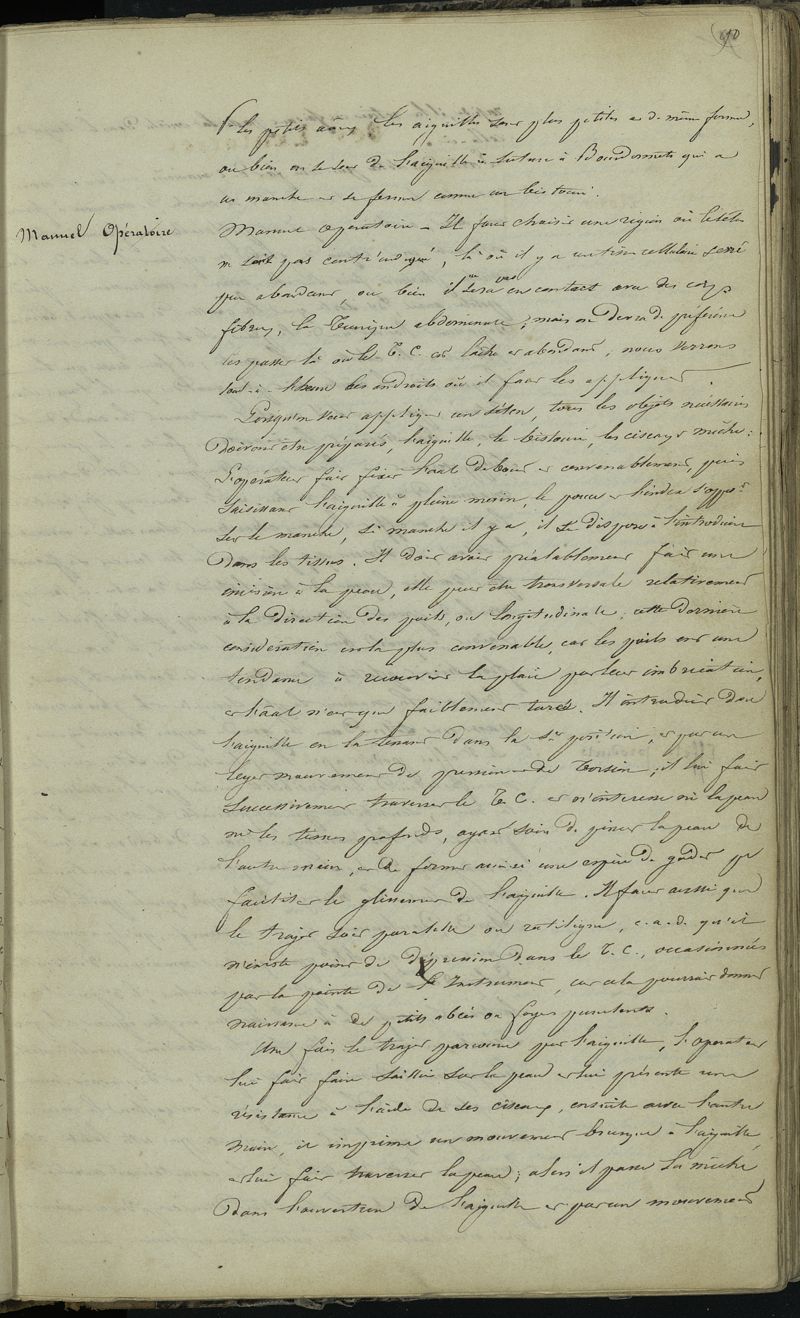 90
Pr les petits aux, les aiguilles sont plus petites et de même forme,
ou bien on se sert de l'aiguille à suture à Bourdonnets qui a
un manche et se ferme comme un bistouri.
Manuel Opératoire
Manuel opératoire - Il faut choisir une région où le séton
ne soit pas contr'indiqué, là où il y a un tissu cellulaire serré
peu abondant, ou bien il sera en contact avec des corps
fibreux, la Tunique abdominale, mais on devra de préférence
les passer là où le T. C. est lâche et abondant, nous verrons
tout-à-l'heure les endroits où il faut les appliquer.
Lorsqu'on veut appliquer un séton, tous les objets nécessaires
doivent être préparés, l'aiguille, le bistouri, les ciseaux mèche:
L'opérateur fait fixer l'aal debout et convenablement, puis
saisissant l'aiguille à pleine main, le pouce et l'index
sur le manche, si manche il y a, il se dispose à l'introduire
dans les tissus. Il doit avoir préalablement fait une
incision à la peau, elle peut être transversale relativement
à la direction des poils, ou longitudinale; cette dernière
considération est la plus convenable, car les poils ont une
tendance à recouvrir la plaie par leur imbrication,
et l'aal n'est que faiblement taré. Il introduit donc
l'aiguille en la tenant dans la position, et par un
léger mouvement de pression et de torsion, il lui fait
successivement traverser le T. C. et n'intéresse ni la peau
ni les tissus profonds, ayant soin de pincer la peau de
l'autre main, et de former ainsi une espèce de godet pr
faciliter le glissement de l'aiguille. Il faut aussi que
le trajet soit parallèle ou rectiligne, c.a.d. qu'il
n'existe point de dépression dans le T. C., occasionnées
par la pointe de l'Instrument, car cela pourrait donner
naissance à de petits abcès ou foyers purulents.
Une fois le trajet parcouru par l'aiguille, l'opérateur
lui fait faire saillie sur la peau et lui présente une
résistance à l'aide de ses ciseaux, ensuite avec l'autre
main, il imprime un mouvement brusque à l'aiguille,
et lui fait traverser la peau; alors il passe la mèche
dans l'ouverture de l'aiguille et par un mouvement